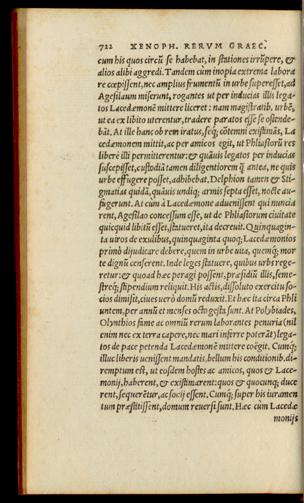 722 XENOPH. RERUM GRAEC.
cum his quos circũ se habebat, in stationes irrũpere, &
alios alibi aggredi. Tandem cum inopia extrema labora
re cœpissent, nec amplius frumentũ in urbe superesset, ad
Agesilaum miserunt, rogantes ut per inducias illis lega-
tos Lacedæmonẽ mittere liceret: nam magistratib. urbẽ,
ut ea ex libito uterentur, tradere paratos esse se ostende-
bãt. At ille hanc ob rem iratus, seq; cõtemni existimãs, La
cedæmonem mittit, ac per amicos egit, ut Phliasiorũ res
libere illi permitterentur: & quãuis legatos per inducias
suscepisset, custodiã tamen diligentiorem q̃ antea, ne quis
urbe effugere posset, adhibebat. Delphion tamen & Sti-
gmatias quidã, quãuis undiq; armis septa esset, nocte au-
fugerunt. At cùm à Lacedæmone aduenissent qui nuncia
rent, Agesilao concessum esse, ut de Phliasiorum ciuitate
quicquid libitũ esset, statueret, ita decreuit. Quinquagin-
ta uiros de exulibus, quinquaginta quoq; Lacedæmonios
primò dijudicare debere, quem in urbe uita, quemq; mor
te dignũ censerent. Inde leges statuere, quibus urbs rege-
retur: & quoad hæc peragi possent, præsidiũ illis, seme-
streq; stipendium reliquit. His actis, dissoluto exercitu so-
cios dimisit, ciues uerò domũ reduxit. Et hæc ita circa Phli
untem, per annũ et menses octo gesta sunt. At Polybiades,
Olynthios fame ac omniũ rerum laborantes penuria (nil
enim nec ex terra capere, nec mari inferre poterãt) lega-
tos de pace petenda Lacedæmonẽ mittere coëgit. Cumq;
illuc liberis uenissent mandatis, bellum his conditionib. di-
remptum est, ut eosdem hostes ac amicos, quos & Lacæ-
monij, haberent, & existimarent: quos & quocunq; duce
rent, sequerẽtur, ac socij essent. Cumq; super his iuramen
tum præstitissent, domum reuersi sunt. Hæc cùm Lacedæ
monijs